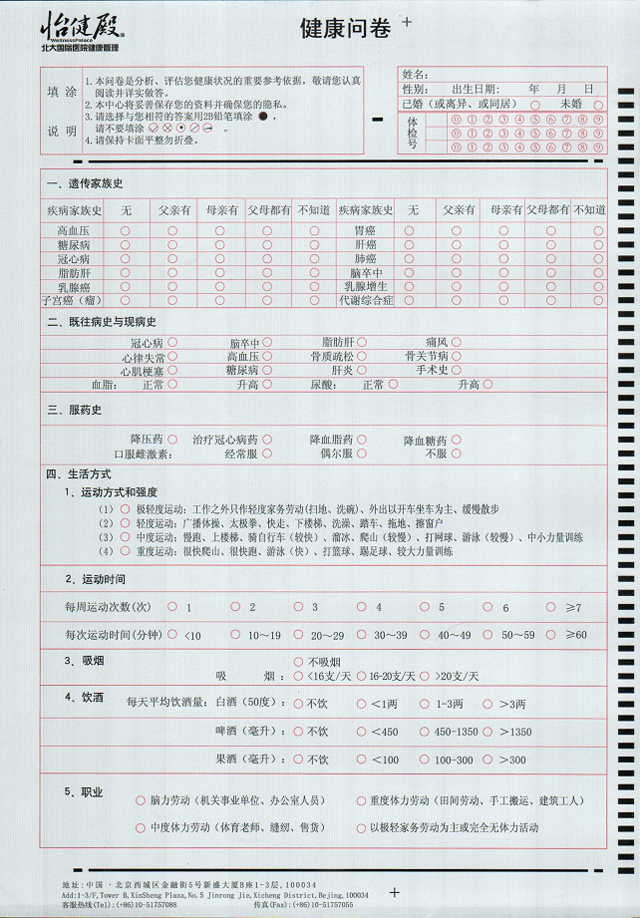 怡健殿
WellnessPalace
北大国际医院健康管理
健康问卷
填涂说明
1.本问卷是分析、评估您健康状况的重要参考依据，敬请您认真
阅读并详实做答。
2.本中心将妥善保存您的资料并确保您的隐私。
3.请选择与您相符的答案用2B铅笔填涂 ● ，
请不要填涂 。
4.请保持卡面平整勿折叠。
姓名：
性别： 出生日期： 年 月 日
已婚（或离异、或同居）○ 未婚 ○
体检号
0 1 2 3 4 5 6 7 8 9
0 1 2 3 4 5 6 7 8 9
0 1 2 3 4 5 6 7 8 9
一、遗传家族史
疾病家族史 无 父亲有 母亲有 父母都有 不知道 疾病家族史 无 父亲有 母亲有 父母都有 不知道
高血压 ○ ○ ○ ○ ○ 胃癌 ○ ○ ○ ○ ○
糖尿病 ○ ○ ○ ○ ○ 肝癌 ○ ○ ○ ○ ○
冠心病 ○ ○ ○ ○ ○ 肺癌 ○ ○ ○ ○ ○
脂肪肝 ○ ○ ○ ○ ○ 脑卒中 ○ ○ ○ ○ ○
乳腺癌 ○ ○ ○ ○ ○ 乳腺增生 ○ ○ ○ ○ ○
子宫癌（瘤） ○ ○ ○ ○ ○ 代谢综合症 ○ ○ ○ ○ ○
二、既往病史与现病史
冠心病 ○ 脑卒中 ○ 脂肪肝 ○ 痛风 ○
心律失常 ○ 高血压 ○ 骨质疏松 ○ 骨关节病 ○
心肌梗塞 ○ 糖尿病 ○ 肝炎 ○ 手术史 ○
血脂： 正常 ○ 升高 ○ 尿酸： 正常 ○ 升高 ○
三、服药史
降压药 ○ 治疗冠心病药 ○ 降血脂药 ○ 降血糖药 ○
口服雌激素： 经常服 ○ 偶尔服 ○ 不服 ○
四、生活方式
1、运动方式和强度
（1）○ 极轻度运动：工作之外只作轻度家务劳动(扫地、洗碗)、外出以开车坐车为主、缓慢散步
（2）○ 轻度运动：广播体操、太极拳、快走、下楼梯、洗澡、踏车、拖地、擦窗户
（3）○ 中度运动：慢跑、上楼梯、骑自行车（较快）、溜冰、爬山（较慢）、打网球、游泳（较慢）、中小力量训练
（4）○ 重度运动：很快爬山、很快跑、游泳（快）、打篮球、踢足球、较大力量训练
2、运动时间
每周运动次数(次) ○ 1 ○ 2 ○ 3 ○ 4 ○ 5 ○ 6 ○ ≥7
每次运动时间(分钟) ○ <10 ○ 10～19 ○ 20～29 ○ 30～39 ○ 40～49 ○ 50～59 ○ ≥60
3、吸烟 ○ 不吸烟
吸 烟：○ <16支/天 ○ 16-20支/天 ○ >20支/天
4、饮酒 每天平均饮酒量：白酒（50度）：○ 不饮 ○ <1两 ○ 1-3两 ○ >3两
啤酒（毫升）：○ 不饮 ○ <450 ○ 450-1350 ○ >1350
果酒（毫升）：○ 不饮 ○ <100 ○ 100-300 ○ >300
5、职业
○ 脑力劳动（机关事业单位、办公室人员） ○ 重度体力劳动（田间劳动、手工搬运、建筑工人）
○ 中度体力劳动（体育老师、缝纫、售货） ○ 以极轻家务劳动为主或完全无体力活动
地址:中国·北京西城区金融街5号新盛大厦B座1-3层,100034
Add:1-3/F,Tower B,XinSheng Plaza,No.5 Jinrong Jie,Xicheng District,Bejing,100034
客服热线(Tel):(+86)10-51757088 传真(Fax):(+86)10-51757055